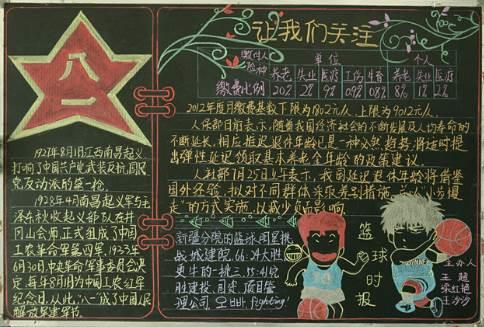 八一
1927年8月1日江西南昌起义
打响了中国共产党武装反抗国民
党反动派的第一枪
1928年4月南昌起义军与毛
泽东秋收起义部队在井
冈山会师,正式组成了中国
工农革命军第四军,1933年
6月30日,中央革命军事委员会决
定,每年8月1日为中国工农红军
纪念日,从此,"八一"成了中国人民
解放军建军节.
让我们关注
缴付人
单位
个人
养老 失业 医疗 工伤 生育 养老 失业 医疗
缴费比例 20% 2% 9% 0.9% 0.8% 8% 1% 2%
2012年度月缴费基数下限为1802元/人,上限为9012元/人.
人保部日前表示,随着我国经济社会的不断发展及人均寿命的
不断延长,相应延迟退休年龄是一种必然趋势,将适时提
出弹性延迟领取基本养老金年龄的政策建议.
人社部7月25日表示,我国延迟退休年龄将借鉴
国外经验,拟对不同群体采取差别措施,并以"小步慢
走"的方式实施,以减少负面影响
新疆分院的篮球,闯里挑
战城建院,66:24大胜
胜建投,
篮球时报
主办人
王超
梁红艳
王沙沙